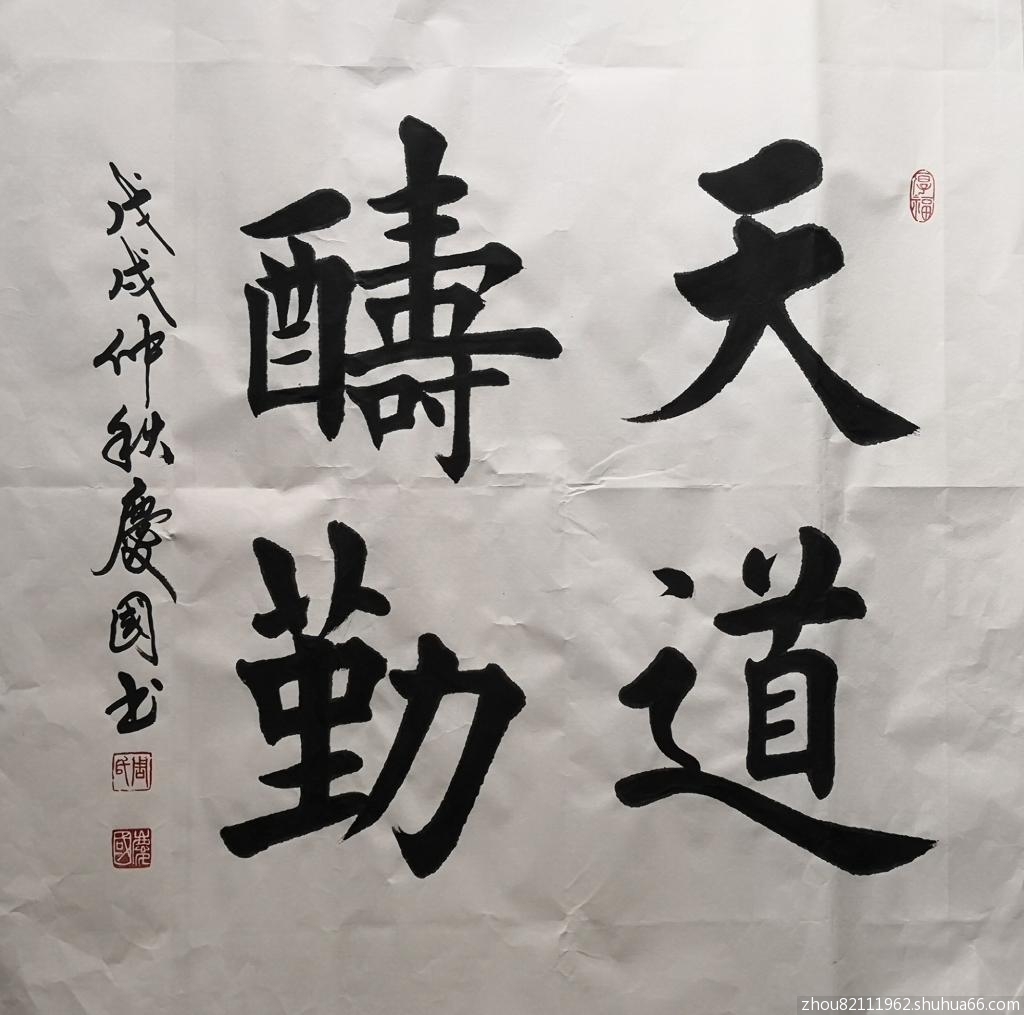 天道
醻勤
戊戌仲秋慶國书
厚福
周氏
慶國
zhou82111962.shuhua66.com